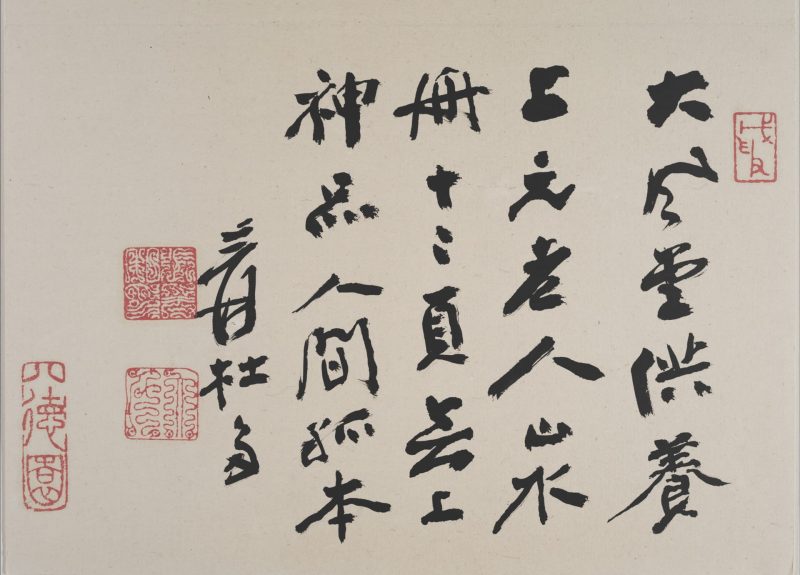 大風堂供養
上元老人山水
冊十二頁無上
神品人間孤本
爰杜多
八德園